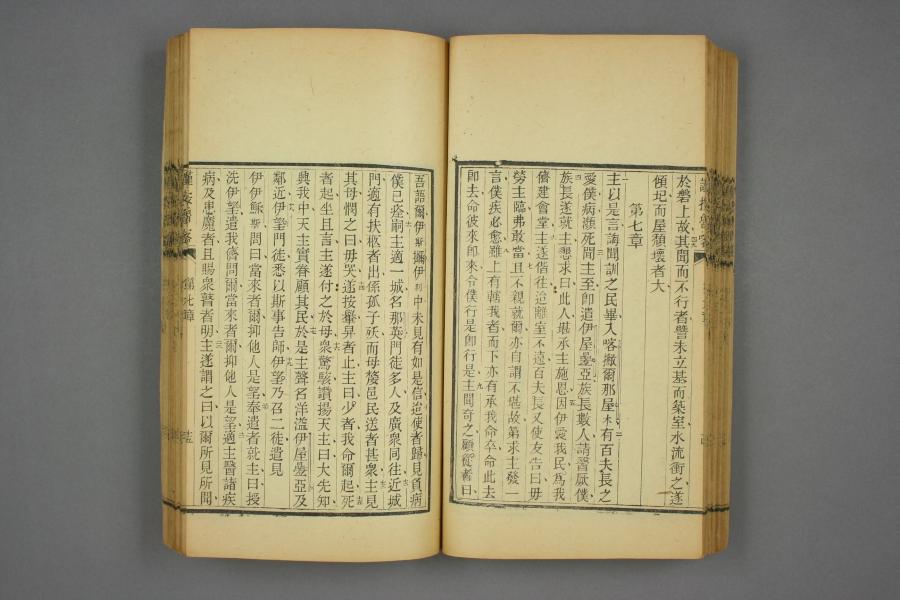 於磐上故其聞而不行者譬未立基而築室水流衝之遂
傾圮而屋頽壞者大
第七章
主以是言誨聞訓之民畢入喀撇爾那屋木有百夫長之
愛僕病瀕死聞主至卽遣伊屋叠亞族長數人請醫厥僕
族長遂就主懇求曰此人堪承主施恩因伊愛我民爲我
儕建會堂主遂偕往迨離室不遠百夫長又使友告曰毋
勞主臨弗敢當且不親就爾亦自謂不堪故第求主發一
言僕疾必愈雖上有轄我者而下亦有承我命卒命此去
卽去命彼來卽來令僕行是卽行是主聞奇之顧從者曰
吾語爾伊斯攡伊利中未見有如是信迨使者歸見負病
僕已痊嗣主適一城名那英門徒多人及廣衆同往近城
門適有扶柩者出係孤子殀而母嫠邑民送者甚衆主見
其母憫之曰毋哭遂按轝舁者止主曰少者我命爾起死
者起坐且言主遂付之於母衆驚駭讃揚天主曰大先知
興我中天主實眷顧其民於是主聲名洋溢伊屋叠亞及
鄰近伊望門徒悉以斯事告師伊望乃召二徒遣見
伊伊穌斯問曰當來者爾抑他人是望奉遣者就主曰授
洗伊望遣我儕問爾當來者爾抑他人是望適主醫諸疾
病及患魔者且賜衆瞽者明主遂謂之曰以爾所見所聞